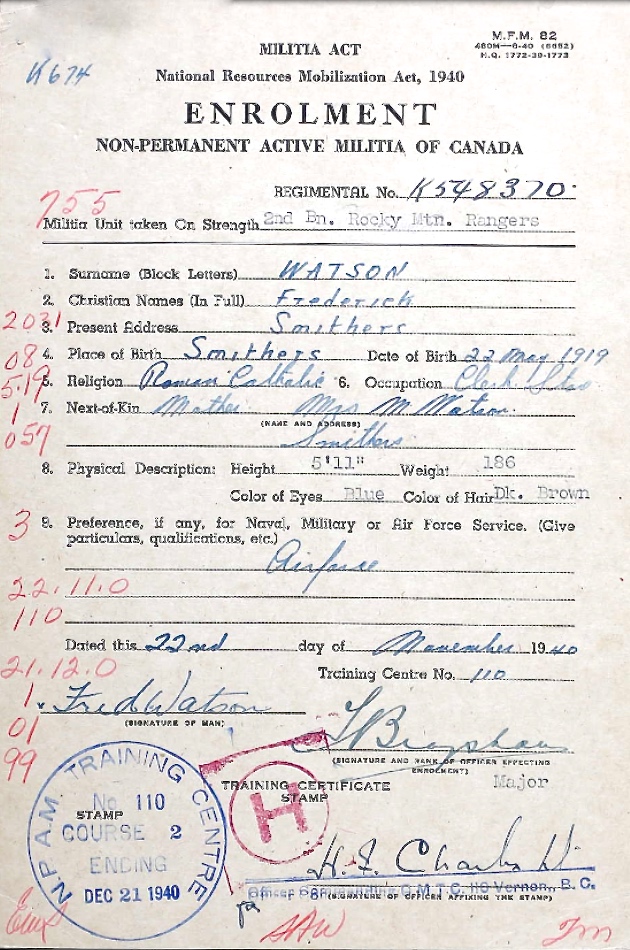 M.F.M. 82
480M—6-40 (6652)
H.Q. 1772-39-1773
K674
MILITIA ACT
National Resources Mobilization Act, 1940
ENROLMENT
NON-PERMANENT ACTIVE MILITIA OF CANADA
REGIMENTAL No. K548370
755
Militia Unit taken On Strength 2nd Bn. Rocky Mtn. Rangers
1. Surname (Block Letters) WATSON
2. Christian Names (In Full) Frederick
2031
3. Present Address Smithers
08
4. Place of Birth Smithers Date of Birth 22 May 1919
519
5. Religion Roman Catholic 6. Occupation Clerk
1
7. Next-of-Kin Mother Mrs M Watson
(NAME AND ADDRESS)
057
Smithers
8. Physical Description: Height 5'11" Weight 186
Color of Eyes Blue Color of Hair Dk. Brown
3
9. Preference, if any, for Naval, Military or Air Force Service. (Give
particulars, qualifications, etc.)
Airforce
22.11.0
110
Dated this 22nd day of November 1940
21.12.0
Training Centre No. 110
1
Fred Watson
(SIGNATURE OF MAN)
01
(SIGNATURE AND RANK OF OFFICER EFFECTING
ENROLMENT)
99
Major
TRAINING CERTIFICATE
STAMP
H
N.P.A.M. TRAINING CENTRE
No 110
STAMP
COURSE 2
ENDING
DEC 21 1940
Officer Commanding C.M.T.C. 110 Vernon, B. C.
(SIGNATURE OF OFFICER AFFIXING THE STAMP)